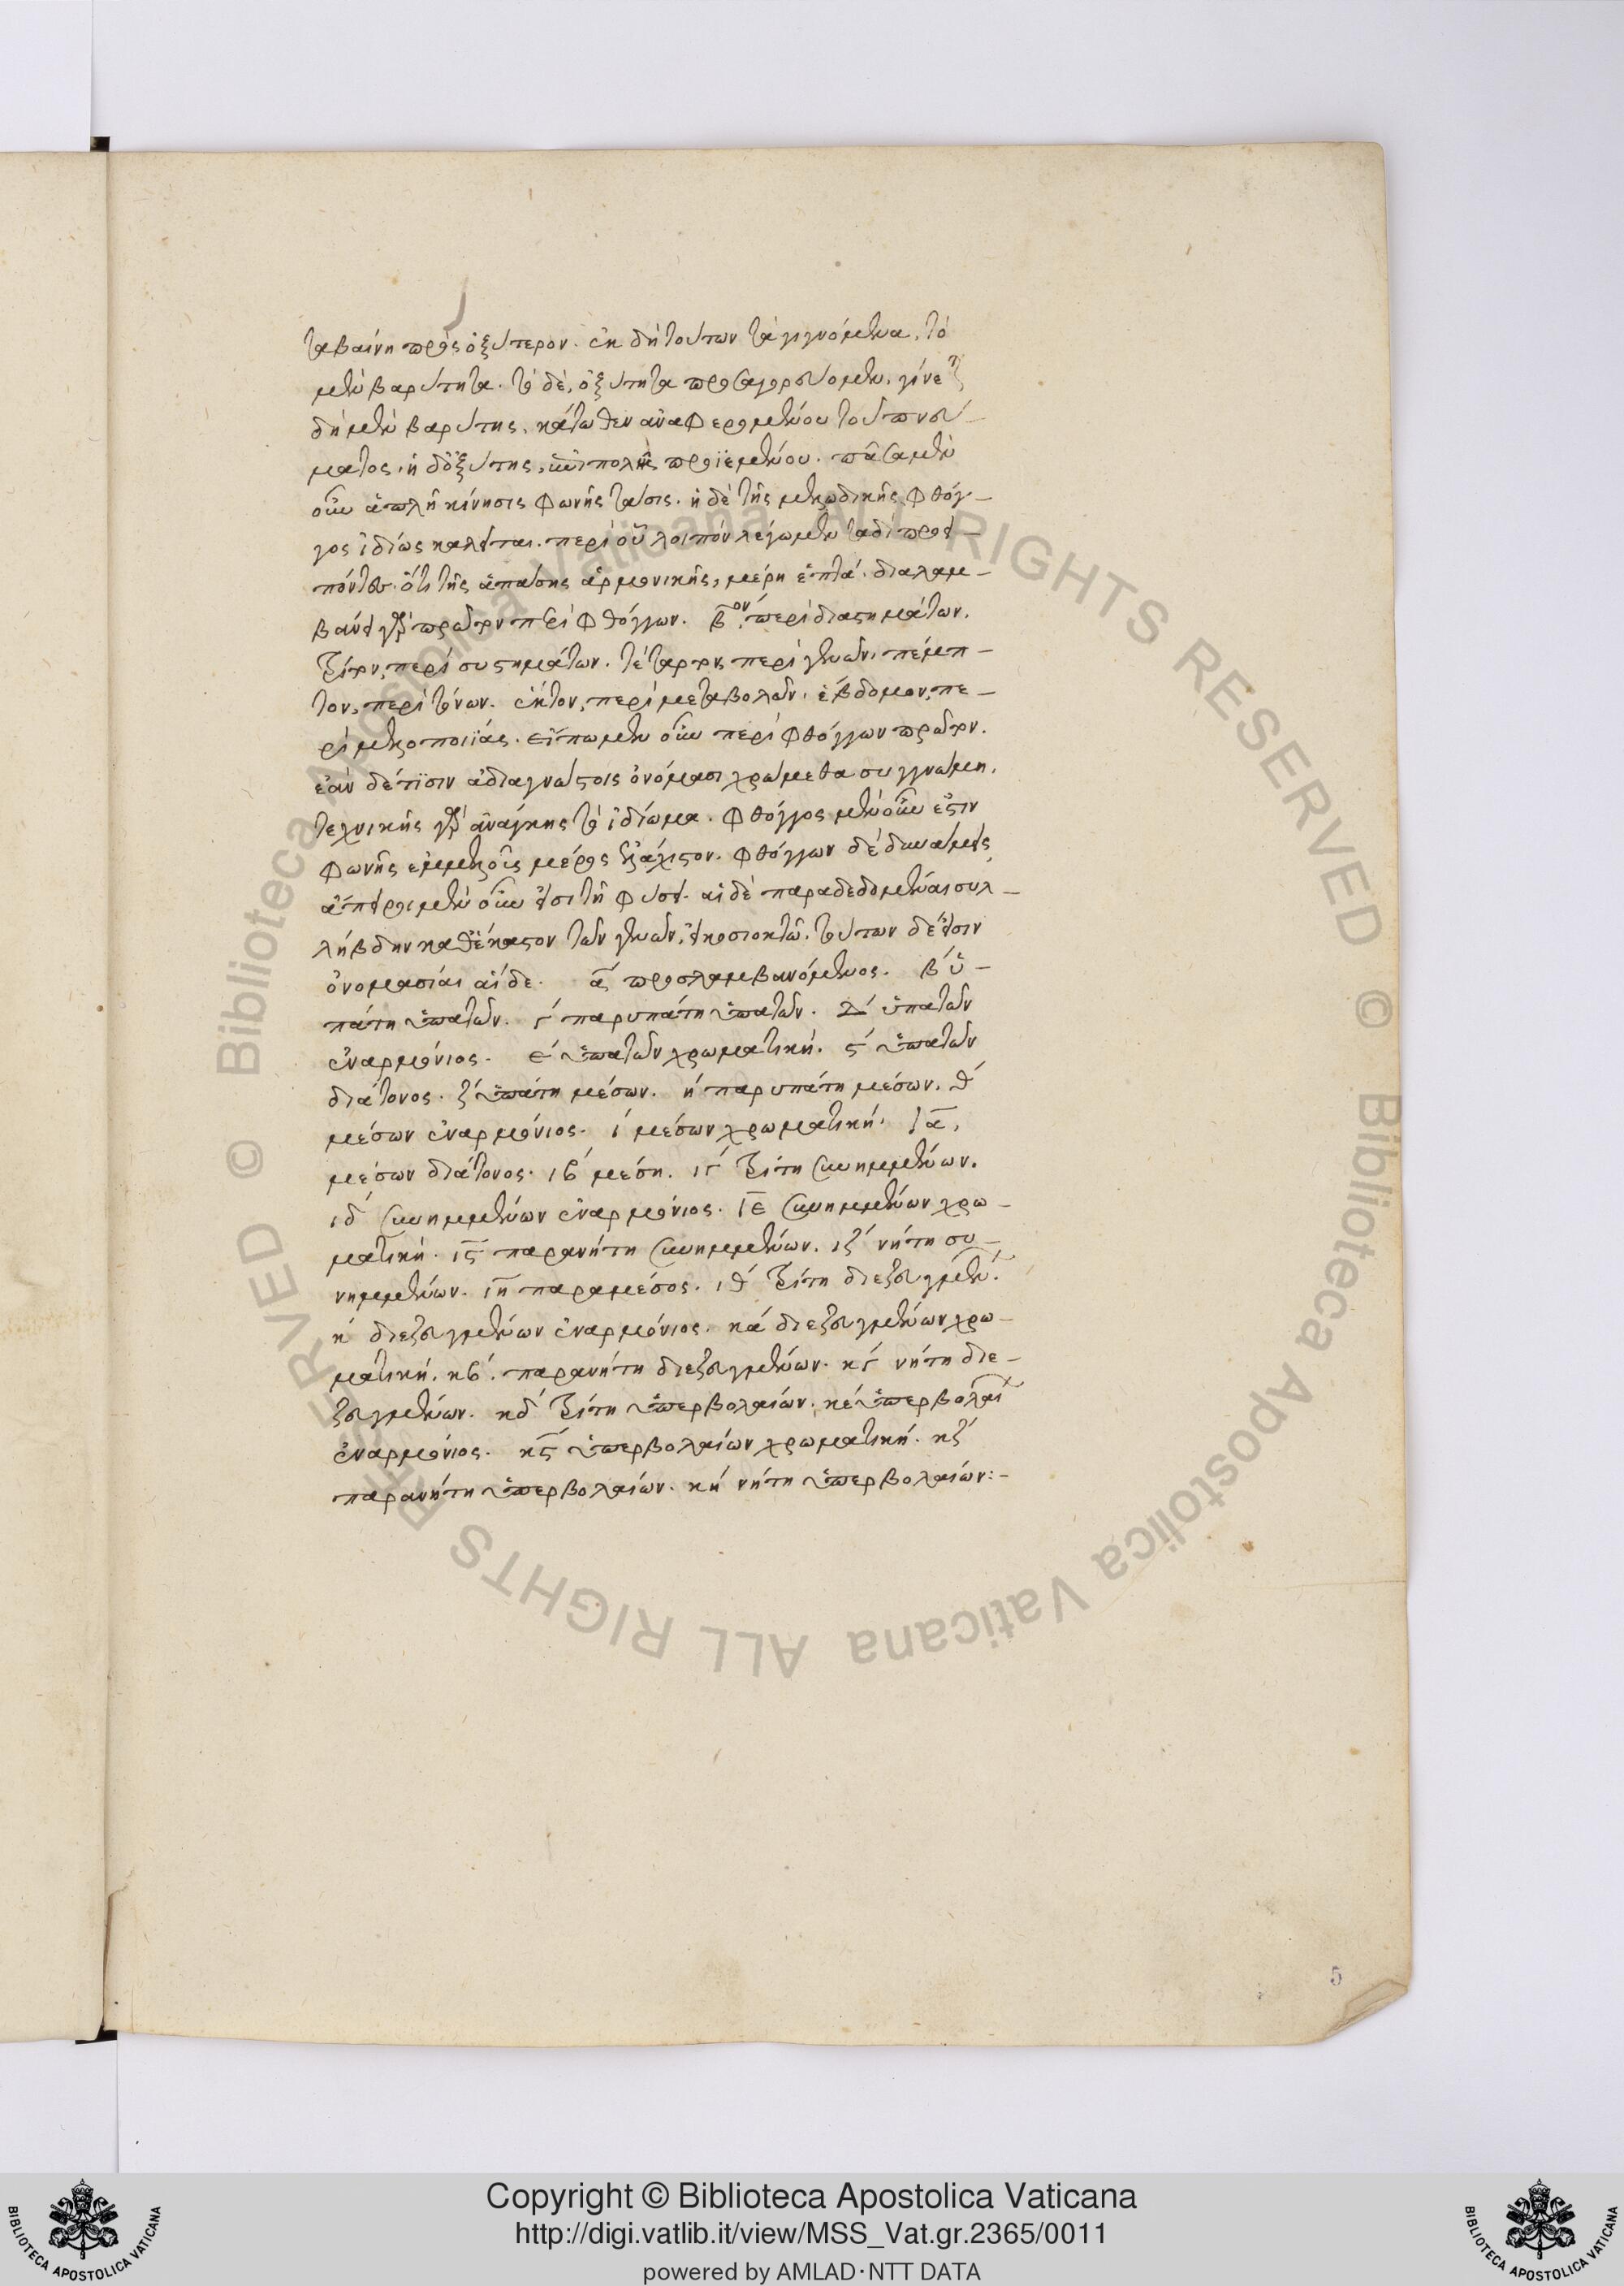 ταβαίνη πρὸς ὀξύτερον. ἐκ δὴ τούτων τὰ γιγνόμενα, τὸ
μὲν βαρύτητα. τὸ δὲ, ὀξύτητα προσαγορεύομεν. γίνεται
δὴ μὲν βαρύτης, κάτωθεν ἀναφερομένου τοῦ πνεύ-
ματος. ἡ δ' ὀξύτης, ἐπιπολῆς προϊεμένου. πᾶσα μὲν
οὖν ἁπλῆ κίνησις φωνῆς τάσις. ἡ δὲ τῆς μελῳδικῆς φθόγ-
γος ἰδίως καλεῖται. περὶ οὗ λοιπὸν λέγωμεν ταδὶ προει-
πόντες. ὅτι τῆς ἁπάσης ἁρμονικῆς, μέρη ἑπτά. διαλαμ-
βάνει γὰρ πρῶτον περὶ φθόγγων. β̅ον περὶ διαστημάτων.
τρίτον, περὶ συστημάτων. τέταρτον, περὶ γενῶν. πέμπ-
τον, περὶ τόνων. ἕκτον, περὶ μεταβολῶν. ἕβδομον, πε-
ρὶ μελοποιΐας. εἴπωμεν οὖν περὶ φθόγγων πρῶτον.
ἐὰν δέ τισιν ἀδιαγνώστοις ὀνόμασι χρώμεθα συγγνώμη.
τεχνικῆς γὰρ ἀνάγκης τὸ ἰδίωμα. φθόγγος μὲν οὖν ἐστιν
φωνῆς ἐμμελοῦς μέρος ἐλάχιστον. φθόγγων δὲ δυνάμεις
ἄπειροι μὲν οὖν εἰσι τῇ φύσει. αἱ δὲ παραδεδομέναι συλ-
λήβδην καθ' ἕκαστον τῶν γενῶν, εἰκοσιοκτώ. τούτων δέ εἰσιν
ὀνομασίαι αἵδε. α̅ προσλαμβανόμενος. β´ ὑ-
πάτη ὑπατῶν. γ´ παρυπάτη ὑπατῶν. Δ´ ὑπατῶν
ἐναρμόνιος. ε´ ὑπατῶν χρωματική. ϛ´ ὑπατῶν
διάτονος. ζ´ ὑπάτη μέσων. η´ παρυπάτη μέσων. θ´
μέσων ἐναρμόνιος. ι´ μέσων χρωματική. ια̅,
μέσων διάτονος. ιβ´ μέση. ιγ´ τρίτη συνημμένων.
ιδ´ συνημμένων ἐναρμόνιος. ιε̅ συνημμένων χρω-
ματική. ιϛ̅ παρανήτη συνημμένων. ιζ´ νήτη συ-
νημμένων. ιη̅ παραμέσος. ιθ´ τρίτη διεζευγμέν.
κ´ διεζευγμένων ἐναρμόνιος. κα´ διεζευγμένων χρω-
ματική. κβ´. παρανήτη διεζευγμένων. κγ´ νήτη διε-
ζευγμένων. κδ´ τρίτη ὑπερβολαίων. κε´ ὑπερβολαί
ἐναρμόνιος. κϛ̅ ὑπερβολαίων χρωματική. κζ´
παρανήτη ὑπερβολαίων. κη´ νήτη ὑπερβολαίων:-
5
© Biblioteca Apostolica Vaticana ALL RIGHTS RESERVED © Biblioteca Apostolica Vaticana ALL RIGHTS RESERVED
Copyright © Biblioteca Apostolica Vaticana
http://digi.vatlib.it/view/MSS_Vat.gr.2365/0011
powered by AMLAD·NTT DATA
BIBLIOTECA APOSTOLICA VATICANA
BIBLIOTECA APOSTOLICA VATICANA